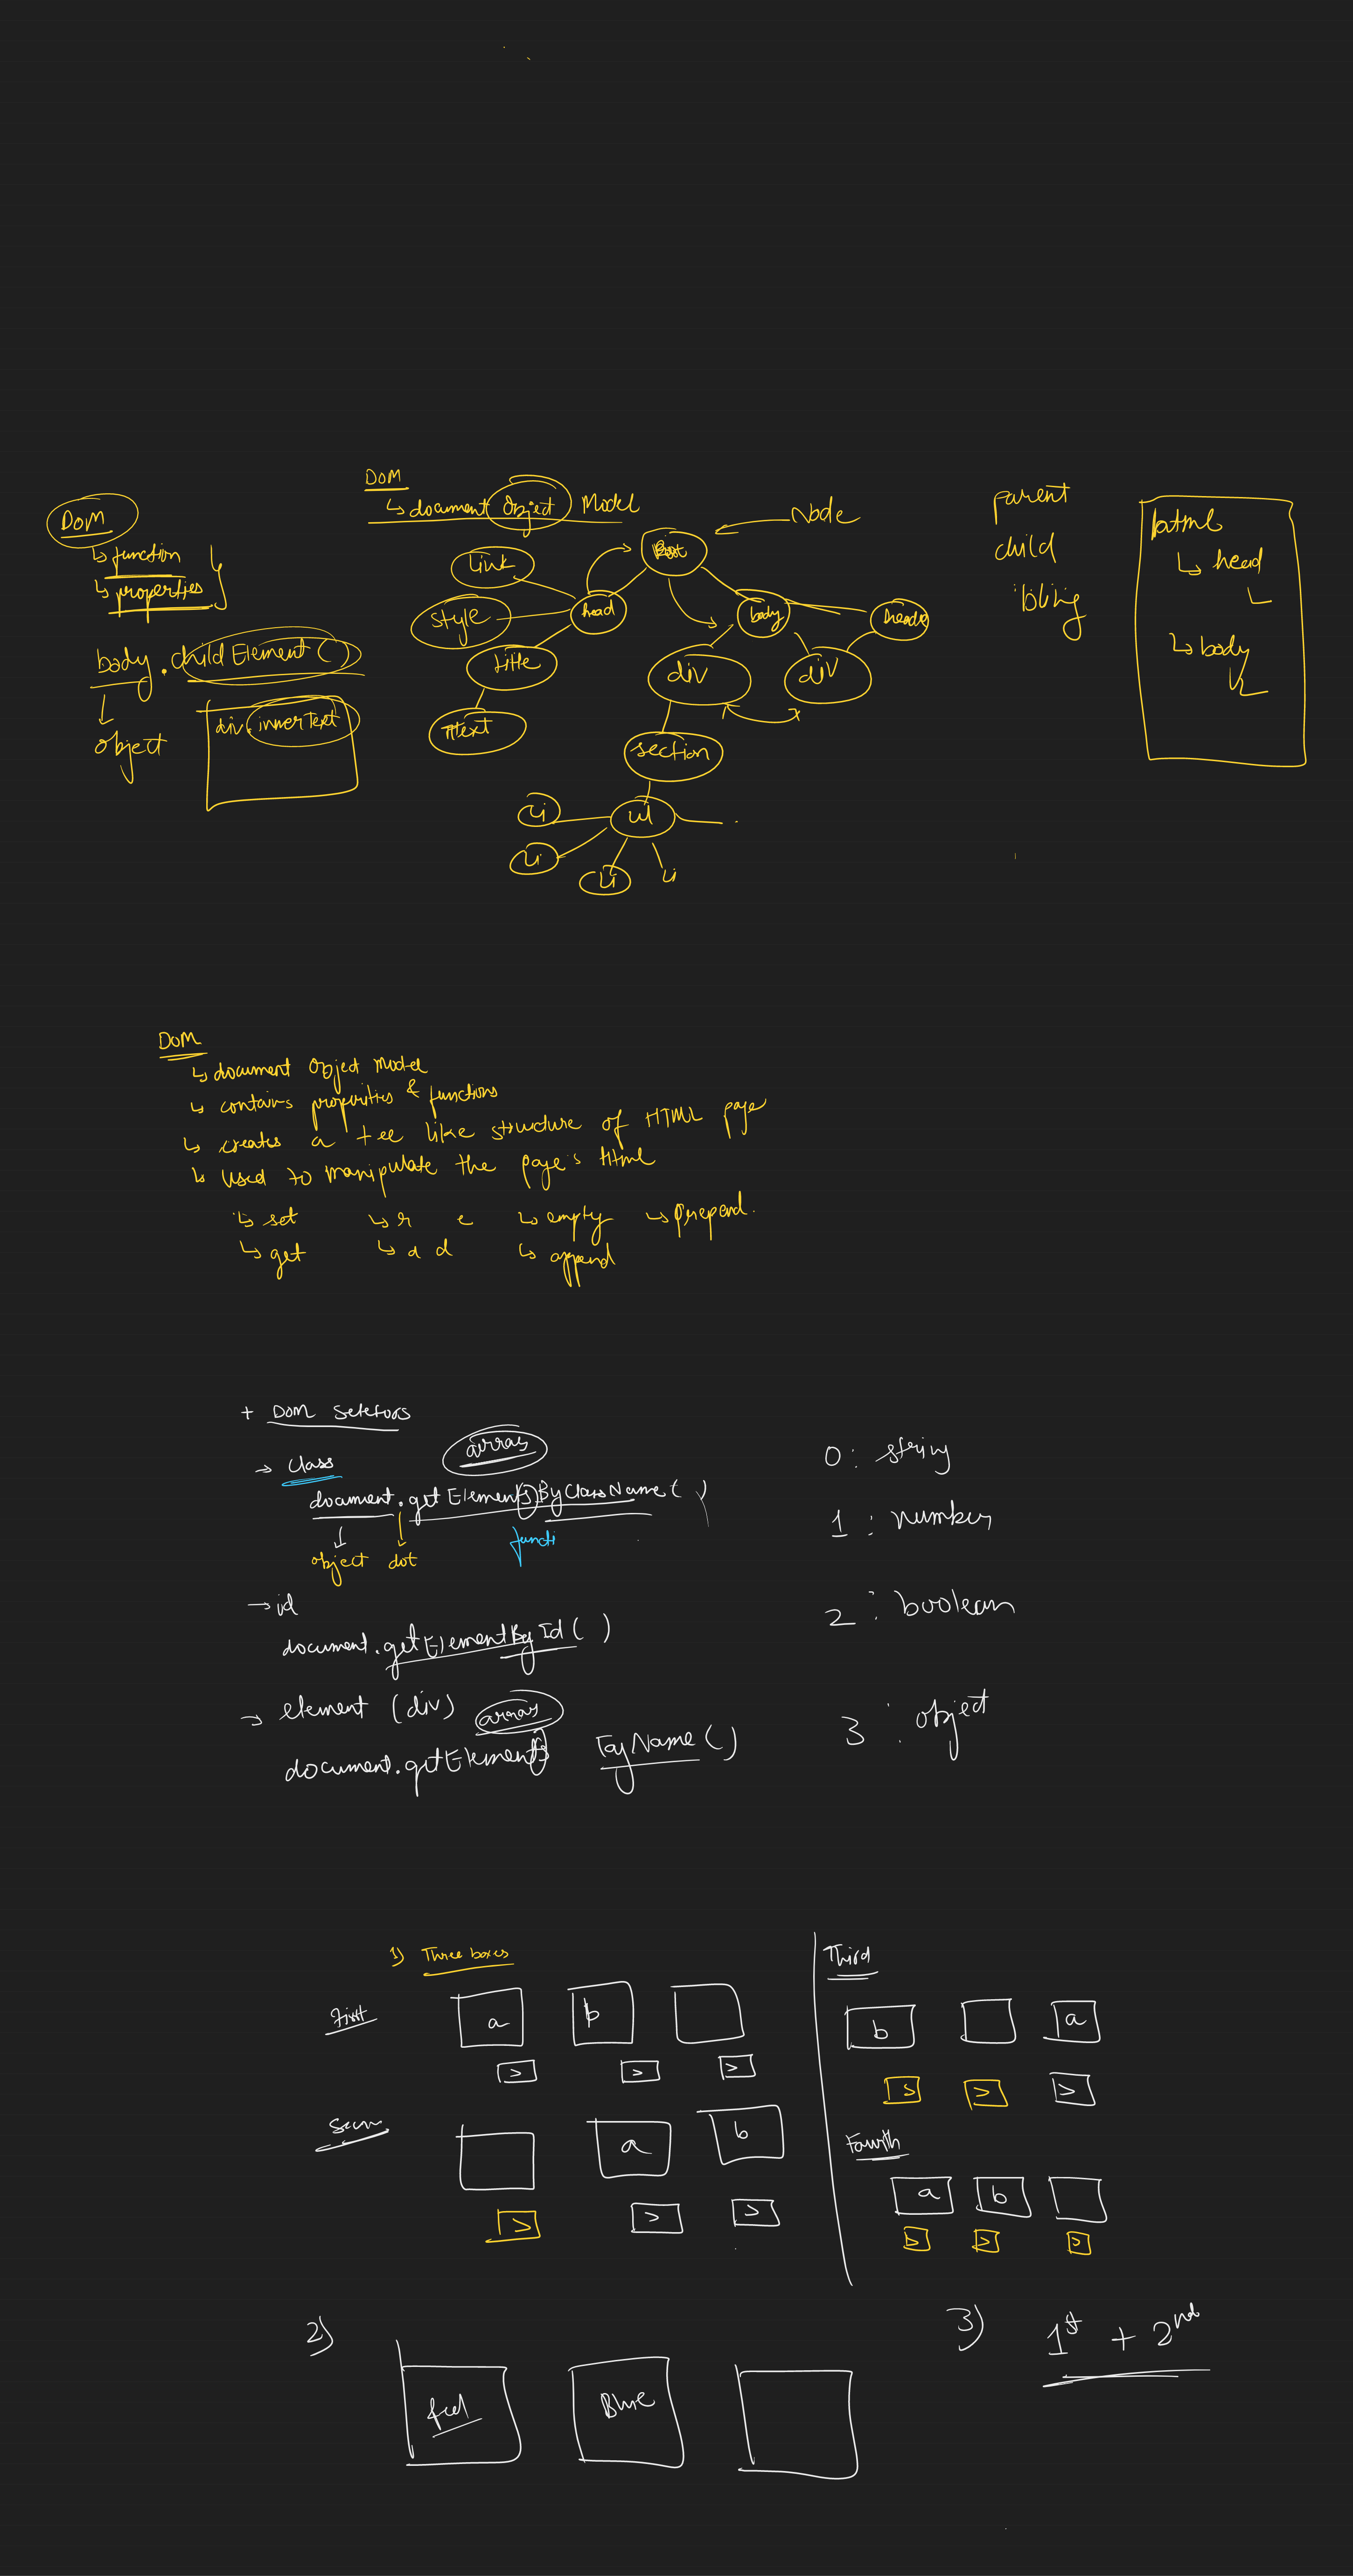 DOM
↳ document Object Model
Node
DOM
↳ function
↳ properties
body . childElement ( )
object
div. innerText
Link
style
head
title
text
body
div
div
section
ul
Li
Li
Li
Li
parent
child
html
↳ head
↳ body
DOM
↳ document Object Model
↳ contains properities & functions
↳ creates a tee like structure of HTML page
↳ used to manipulate the page's html
↳ set ↳ r e ↳ empty ↳ prepend.
↳ get ↳ a d ↳ append
+ DOM
→ Class
array
document.getElements ByClassName ( )
object dot functi
→ id
document.getElementById ( )
→ element (div)
array
document.getElements TagName ( )
0 : string
1 : number
2 : boolean
3 : object
1) Three boxes
First
a b
> > >
a b
> > >
Third
b a
> > >
Fourth
a b
> > >
2)
Blue
3) 1st + 2nd